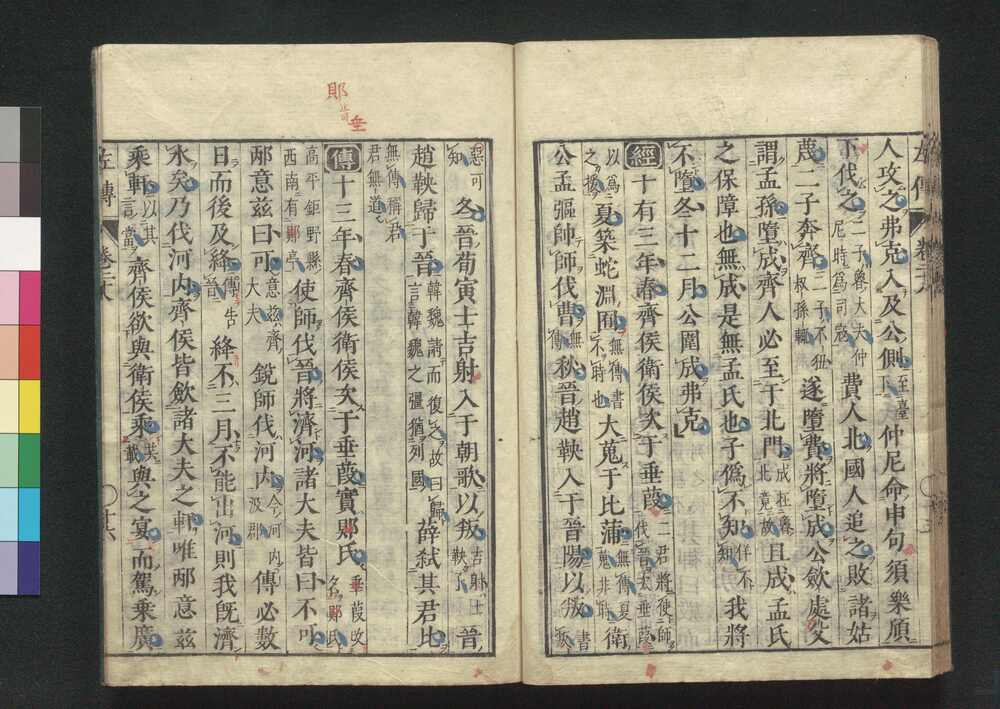 人攻之弗克入及公側至臺下仲尼命申句須樂頎
下伐之二子魯大夫仲尼時爲司寇費人北國人追之敗諸姑
蔑二子奔齊二子不狃叔孫輒遂墮費將墮成公斂處父
謂孟孫墮成齊人必至于北門成在魯北竟故且成孟氏
之保障也無成是無孟氏也子僞不知佯不知我將
不墮冬十二月公圍成弗克
經十有三年春齊侯衛侯次于垂葭二君將使師伐晉次垂葭
以爲之援夏築蛇淵囿無傳書不時也大蒐于比蒲無傳夏蒐非時衛
公孟彄帥師伐曹無傳秋晉趙鞅入于晉陽以叛書叛
惡可知冬晉荀寅士吉射入于朝歌以叛吉射士鞅子晉
趙鞅歸于晉韓魏請而復之故曰歸言韓魏之彊猶列國薛弑其君比
無傳稱君君無道
傳十三年春齊侯衛侯次于垂葭實郹氏垂葭改名郹氏
高平鉅野縣西南有郹亭使師伐晉將濟河諸大夫皆曰不可
邴意茲曰可意茲齊大夫銳師伐河内今河内汲郡傳必數
日而後及絳傳告晉絳不三月不能出河則我既濟
水矣乃伐河内齊侯皆斂諸大夫之軒唯邴意茲
乘軒以其言當齊侯欲與衛侯乘共載與之宴而駕乘廣
左傳
卷二十八
郹音
垂